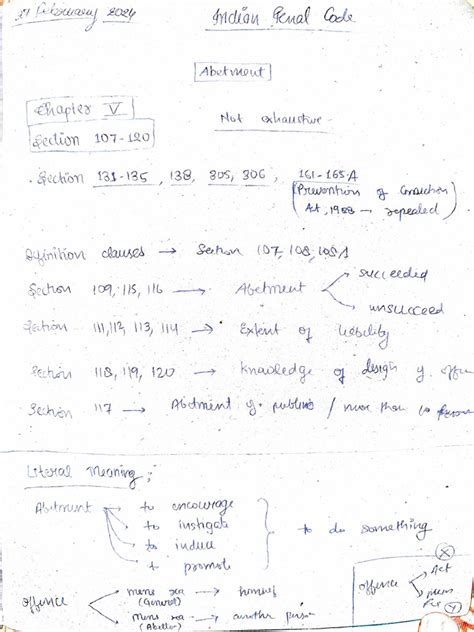 21 February 2024
Indian Penal Code
Abetment
Chapter V
Section 107-120
Not exhaustive
• Section 131-135, 138, 305, 306, 161-165-A
(Prevention of Corruption
Act, 1988 — repealed)
Definition clauses → Section 107, 108, 108A
Section 109, 115, 116 → Abetment → succeeded
→ unsucceed
Section 111, 112, 113, 114 → Extent of liability
Section 118, 119, 120 → Knowledge of design of offe
Section 117 → Abetment of public / more than 10 person
Literal Meaning:
Abetment → to encourage
→ to instigate
→ to induce
→ to promote
} to do something
offence → mens rea → himself
(General)
→ mens rea → another person
(Abettor)
X
offence → Act
→ mens
Y